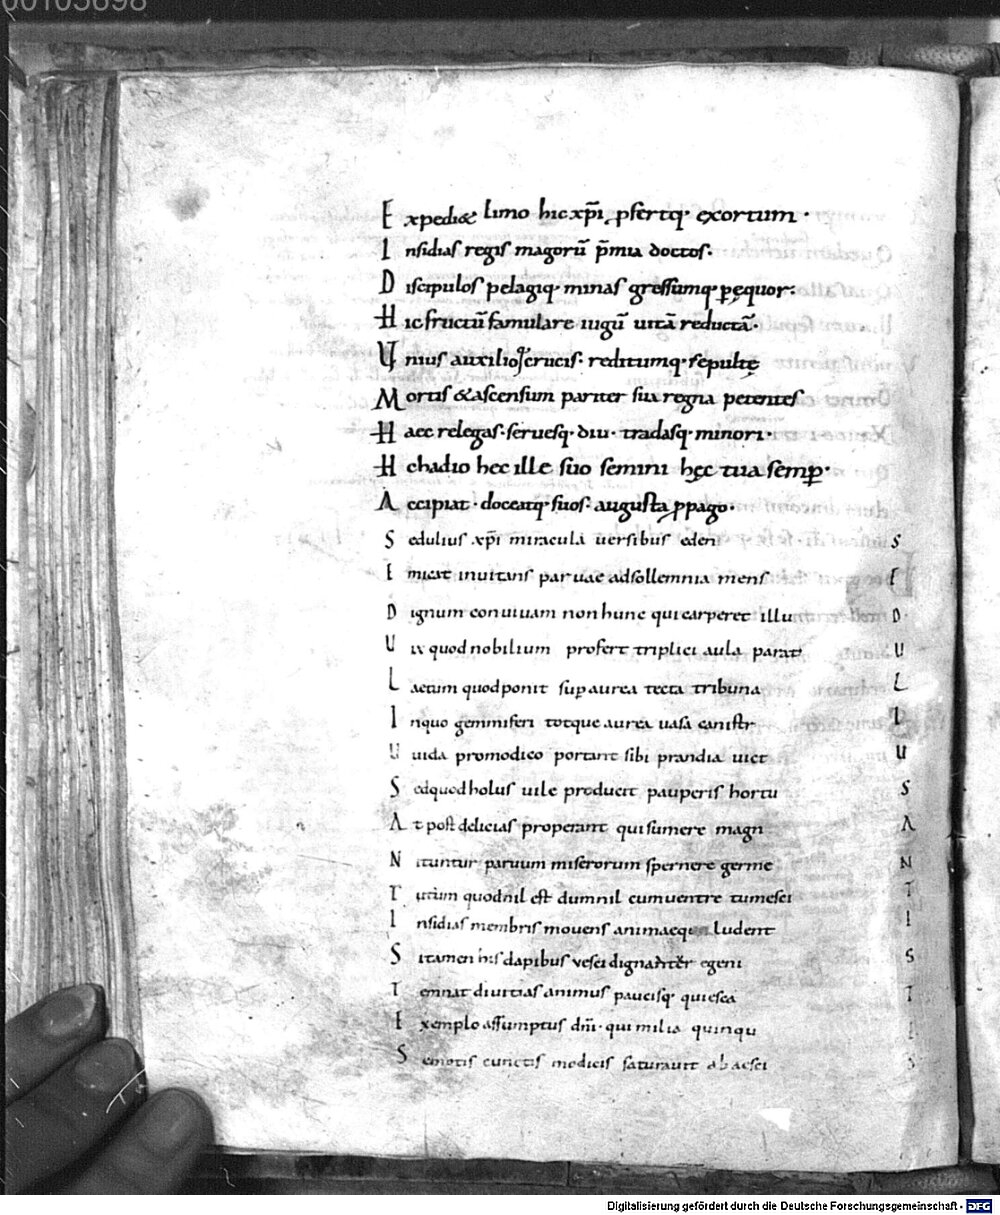 00105698
Expedi& limo hic xp̄i psertiq· exortum ·
Insidias regis magorū p̄mia doctos.
Discipulos pelagiq· minas gressumq· pęquor:
Hic fructū famulare iugū uitā reductā·
Unius auxilio crucis· reditumq· sepultę
Mortis &ascensum pariter sua regna petentes
Haec relegas· seruesq· diu· tradasq· minori·
Hchadio hec ille suo semini hęc tua semp·
Accipiat· doceatq· suos· augusta ppago·
Sedulius xp̄i miracula uersibus eden S
Emicat inuitans paruae adsollemnia mens E
Dignum conuiuam non hunc qui carperet illu D
Uix quod nobilium profert triplici aula parat U
Laetum quod ponit sup aurea tecta tribuna L
Inquo gemmiferi totque aurea uasa canistr I
Uuida promodico portant sibi prandia uict U
Sedquod holus uile producit pauperis hortu S
At post delicias properant qui sumere magn A
Nituntur paruum miserorum spernere germe N
Tutum quodnil est dumnil cumuentre tumesci T
Insidias membris mouens animaequ ludent I
Sitamen his dapibus vesci digna egeni S
Temnat diuitias animus paucisq· quiesca T
Exemplo assumptus dn̄i· qui milia quinqu E
Semotis cunctis modicis saturauit abaesci S
Digitalisierung gefördert durch die Deutsche Forschungsgemeinschaft - DFG